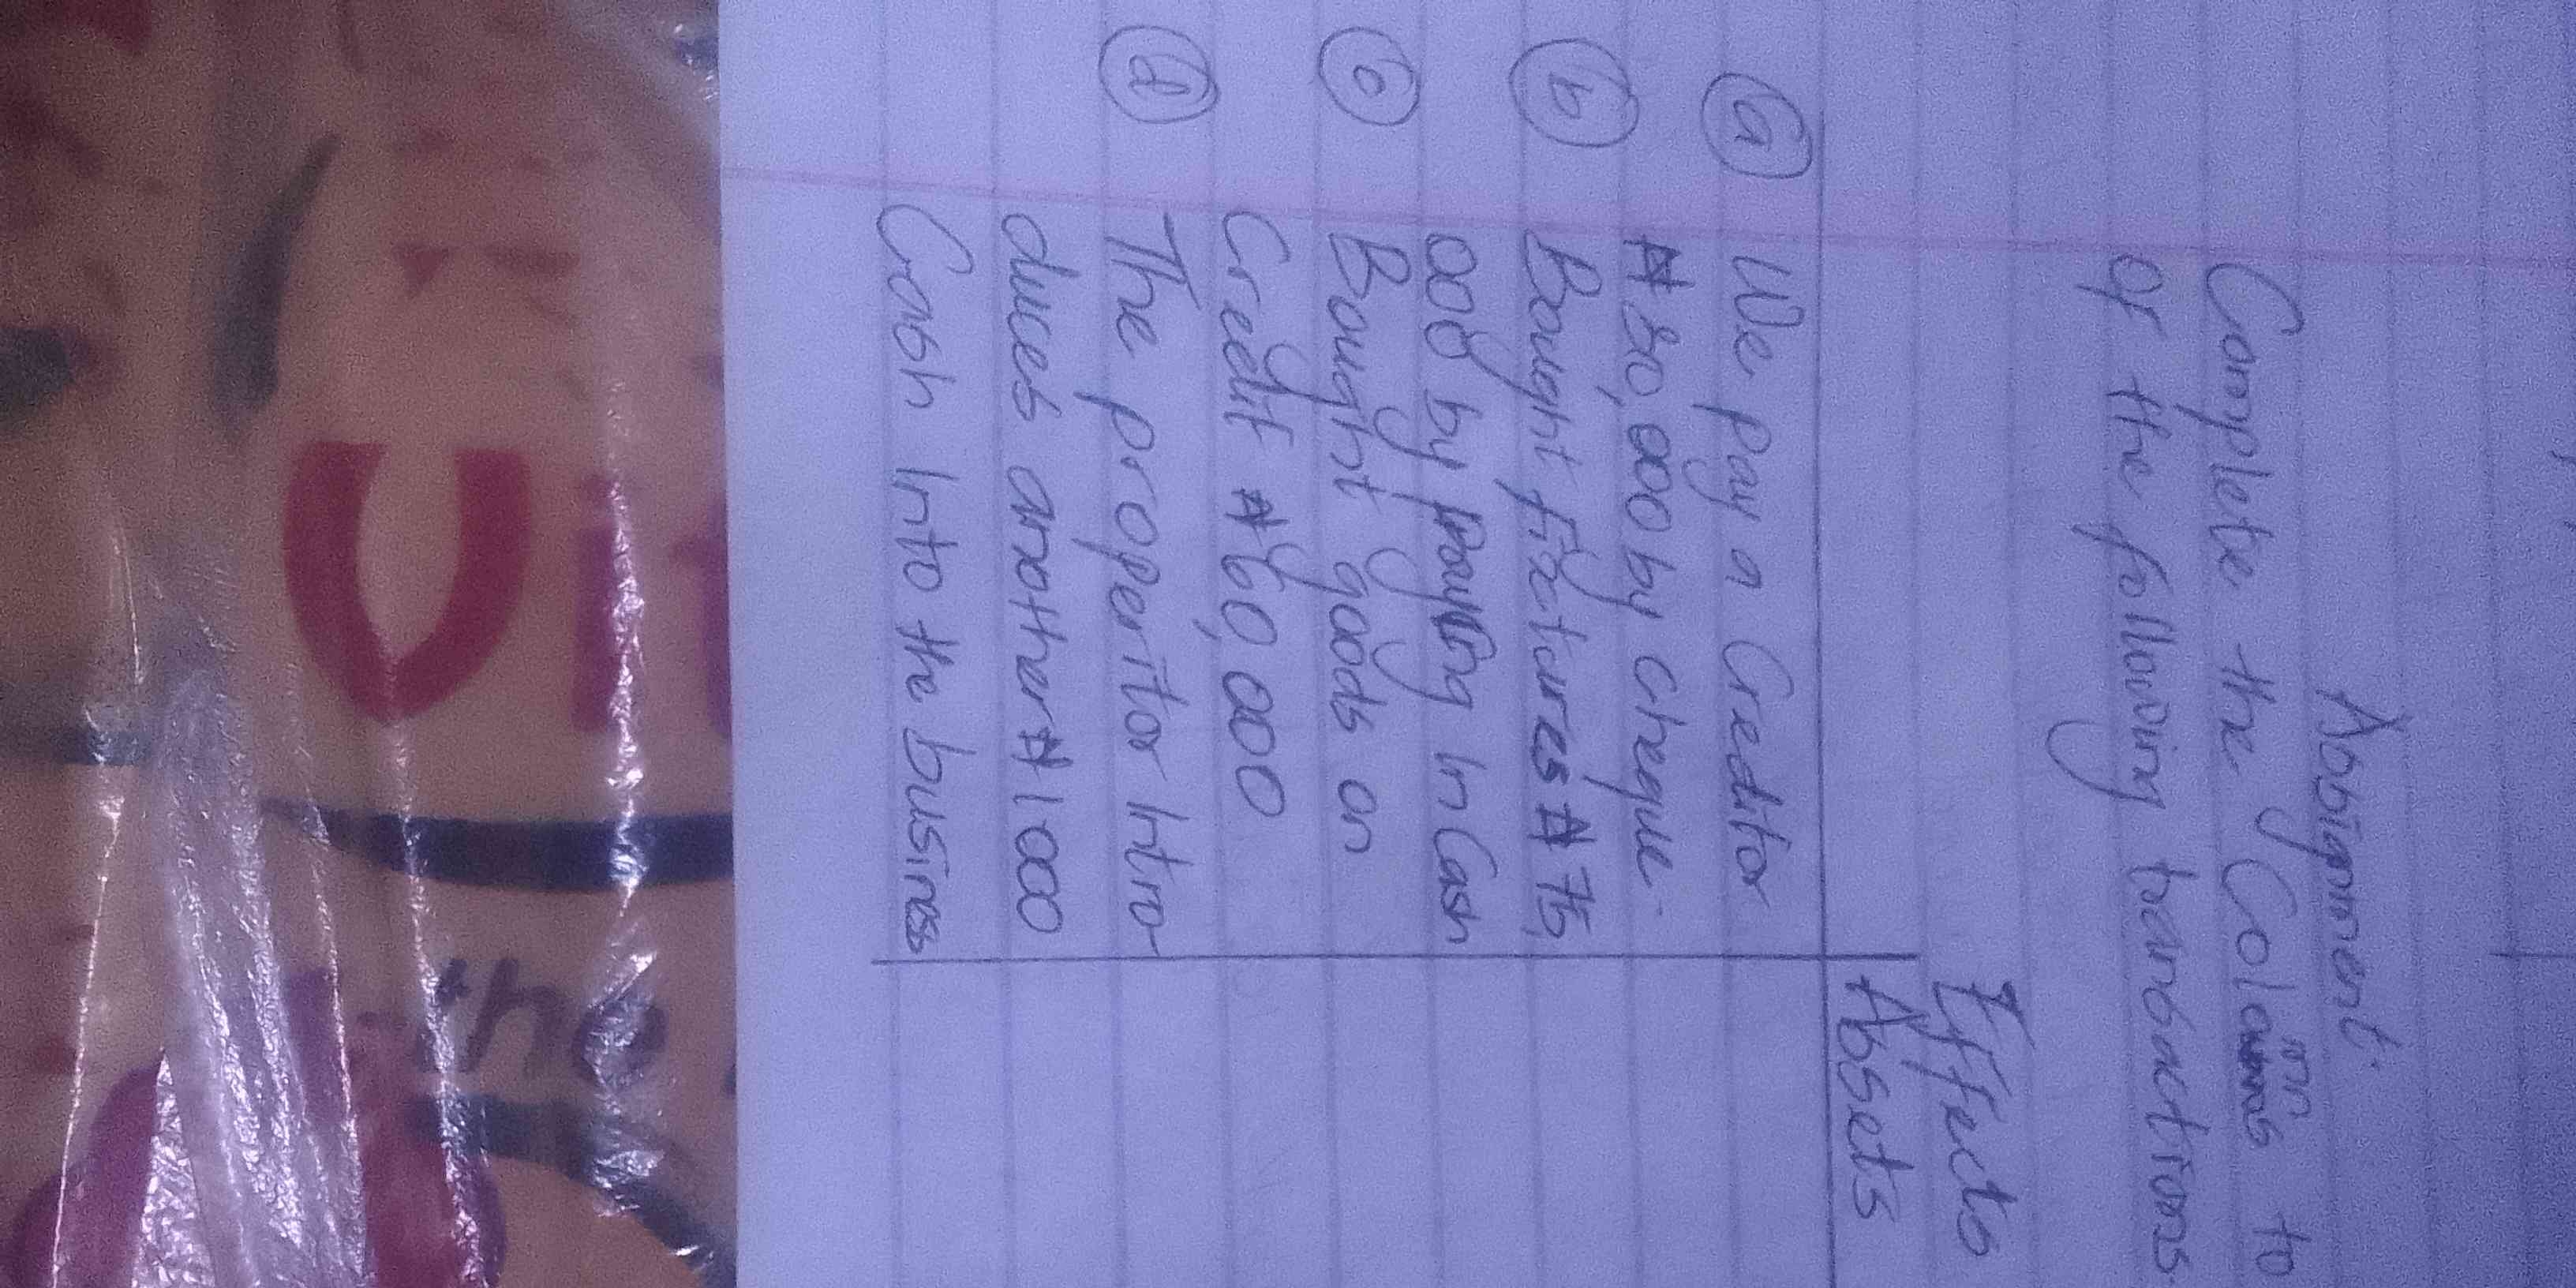 Assignment.
Complete the Columns to
Of the following transactions
Effects
Assets
(a) We pay a Creditor
₦80,000 by cheque.
(b) Bought fixtures ₦75,
000 by paying in Cash
(c) Bought goods on
Credit ₦60,000
(d) The properitor Intro
duces another ₦1000
Cash Into the business
the